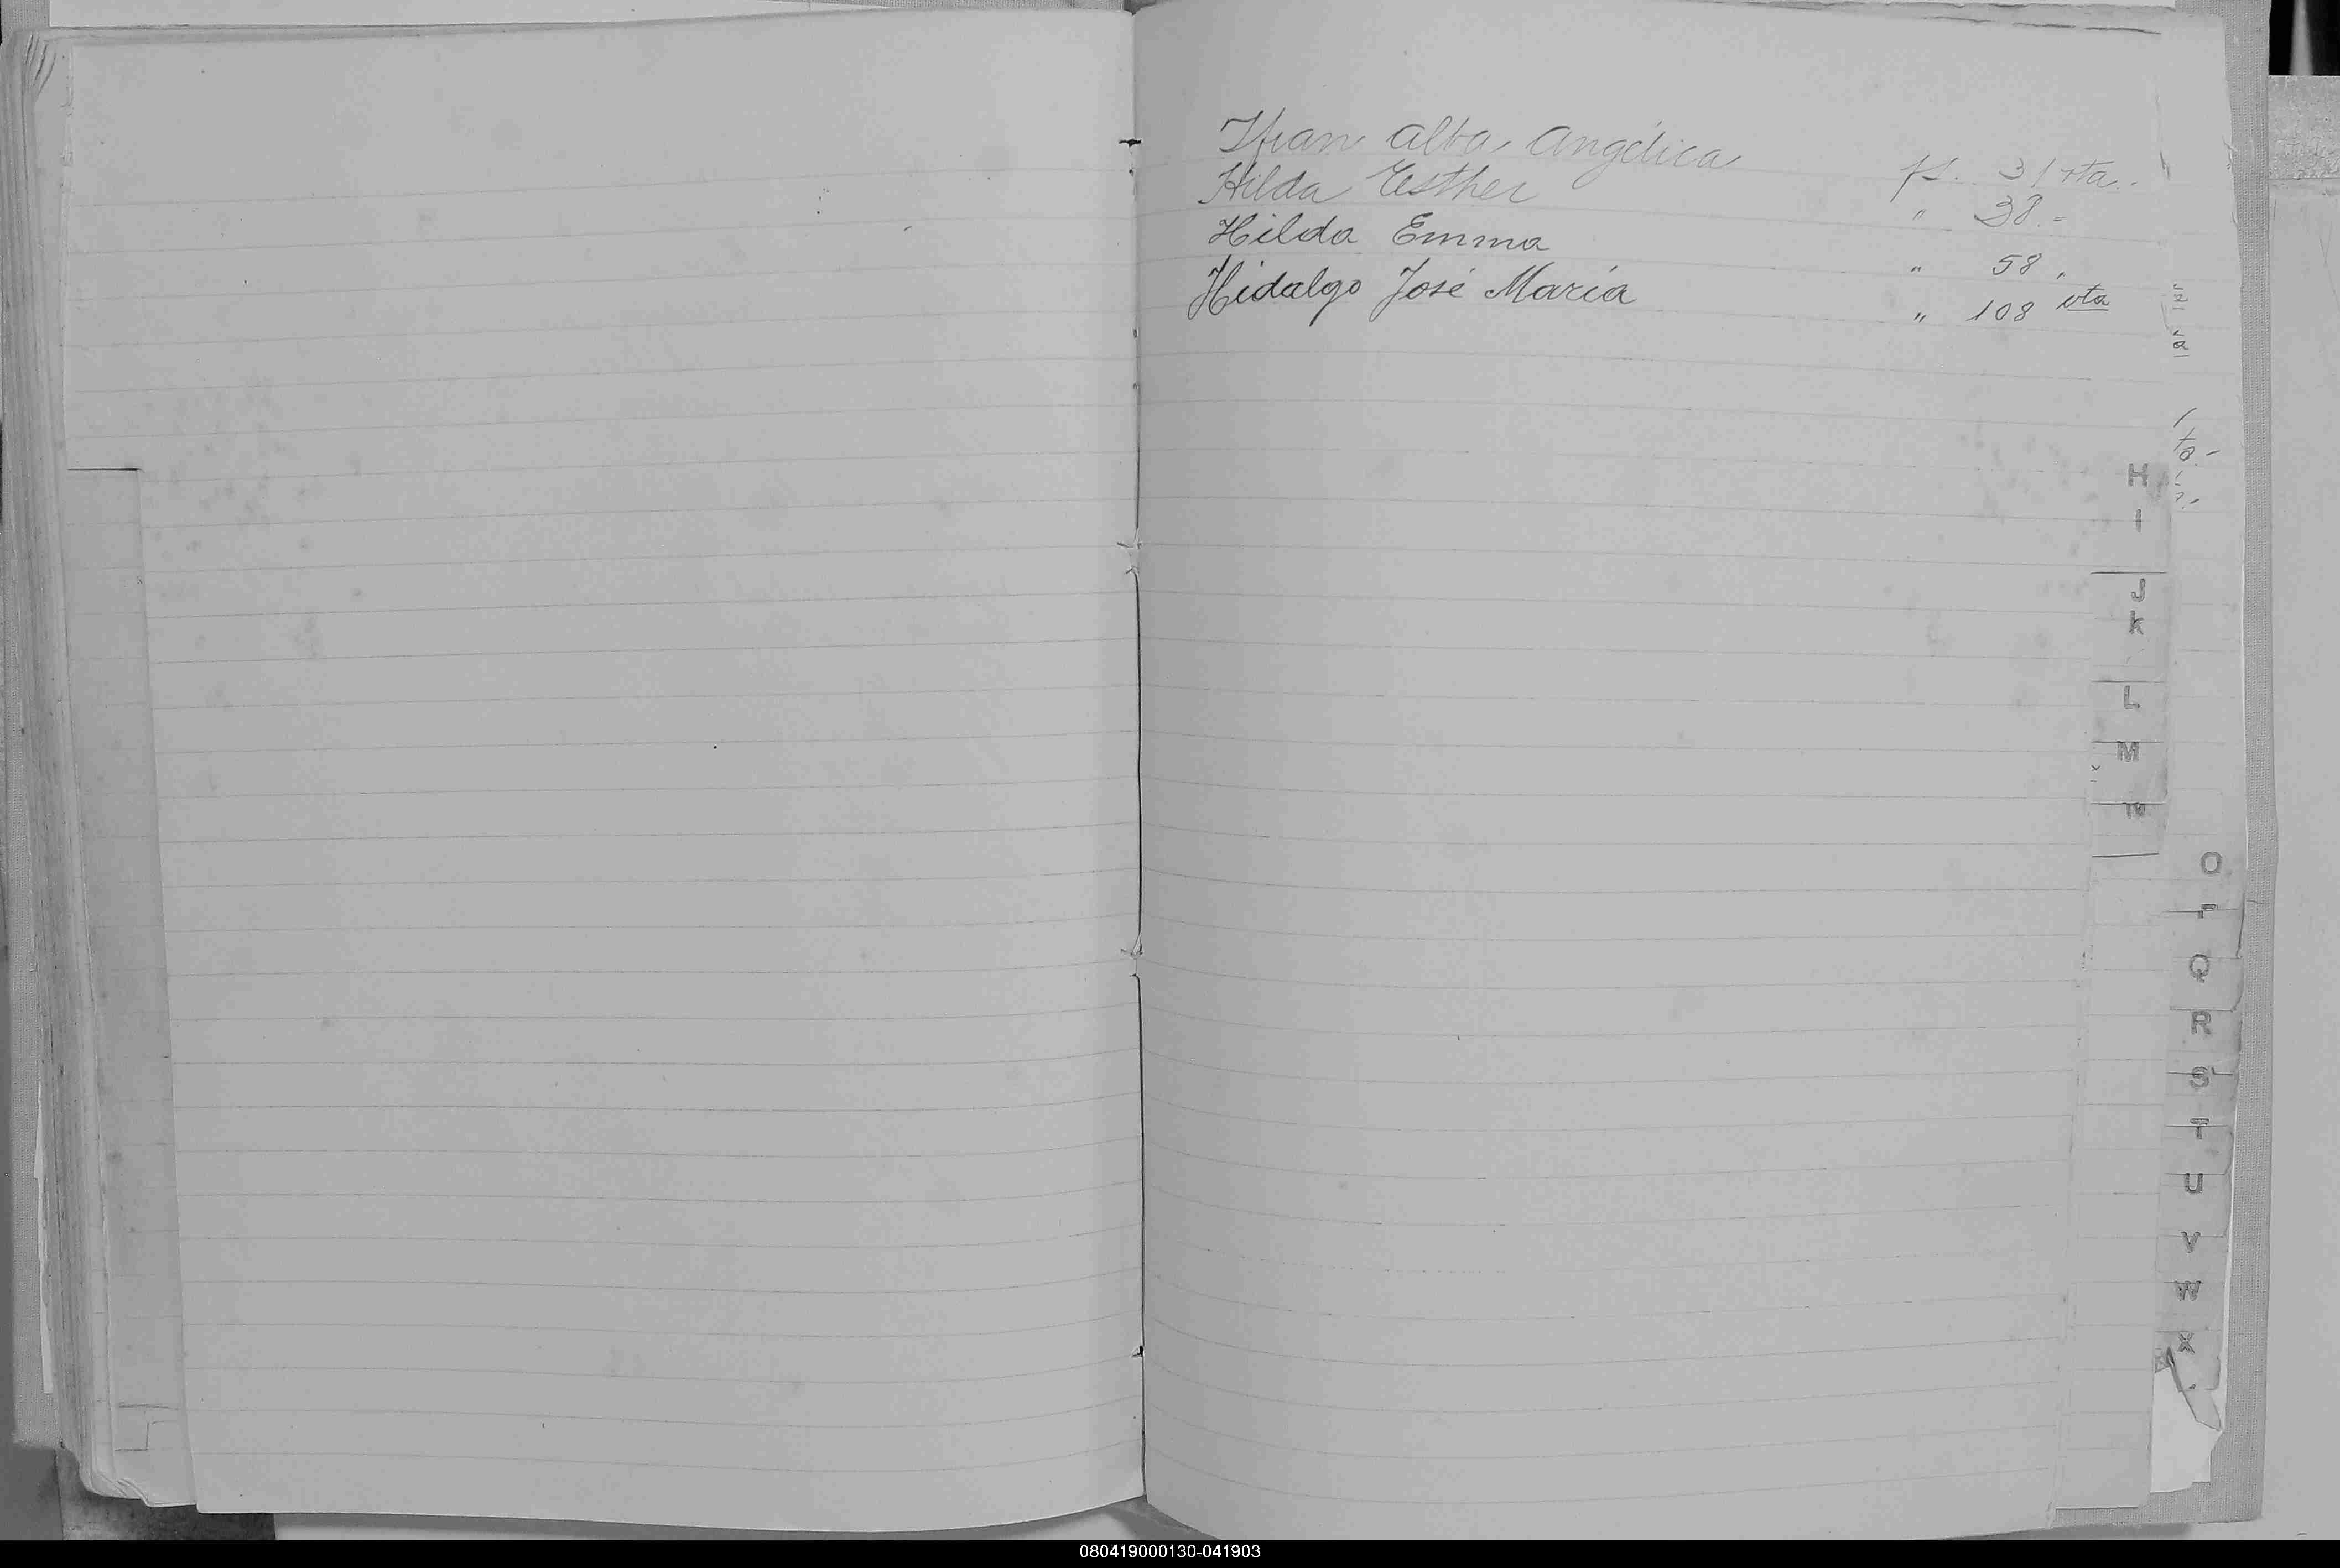 Alba Angélica fs. 31 vta.
Hilda Esther " 38.-
Hilda Emma " 58.
Hidalgo José María " 108 vta
H
I
J
K
L
M
N
O
P
Q
R
S
T
U
V
W
X
080419000130-041903